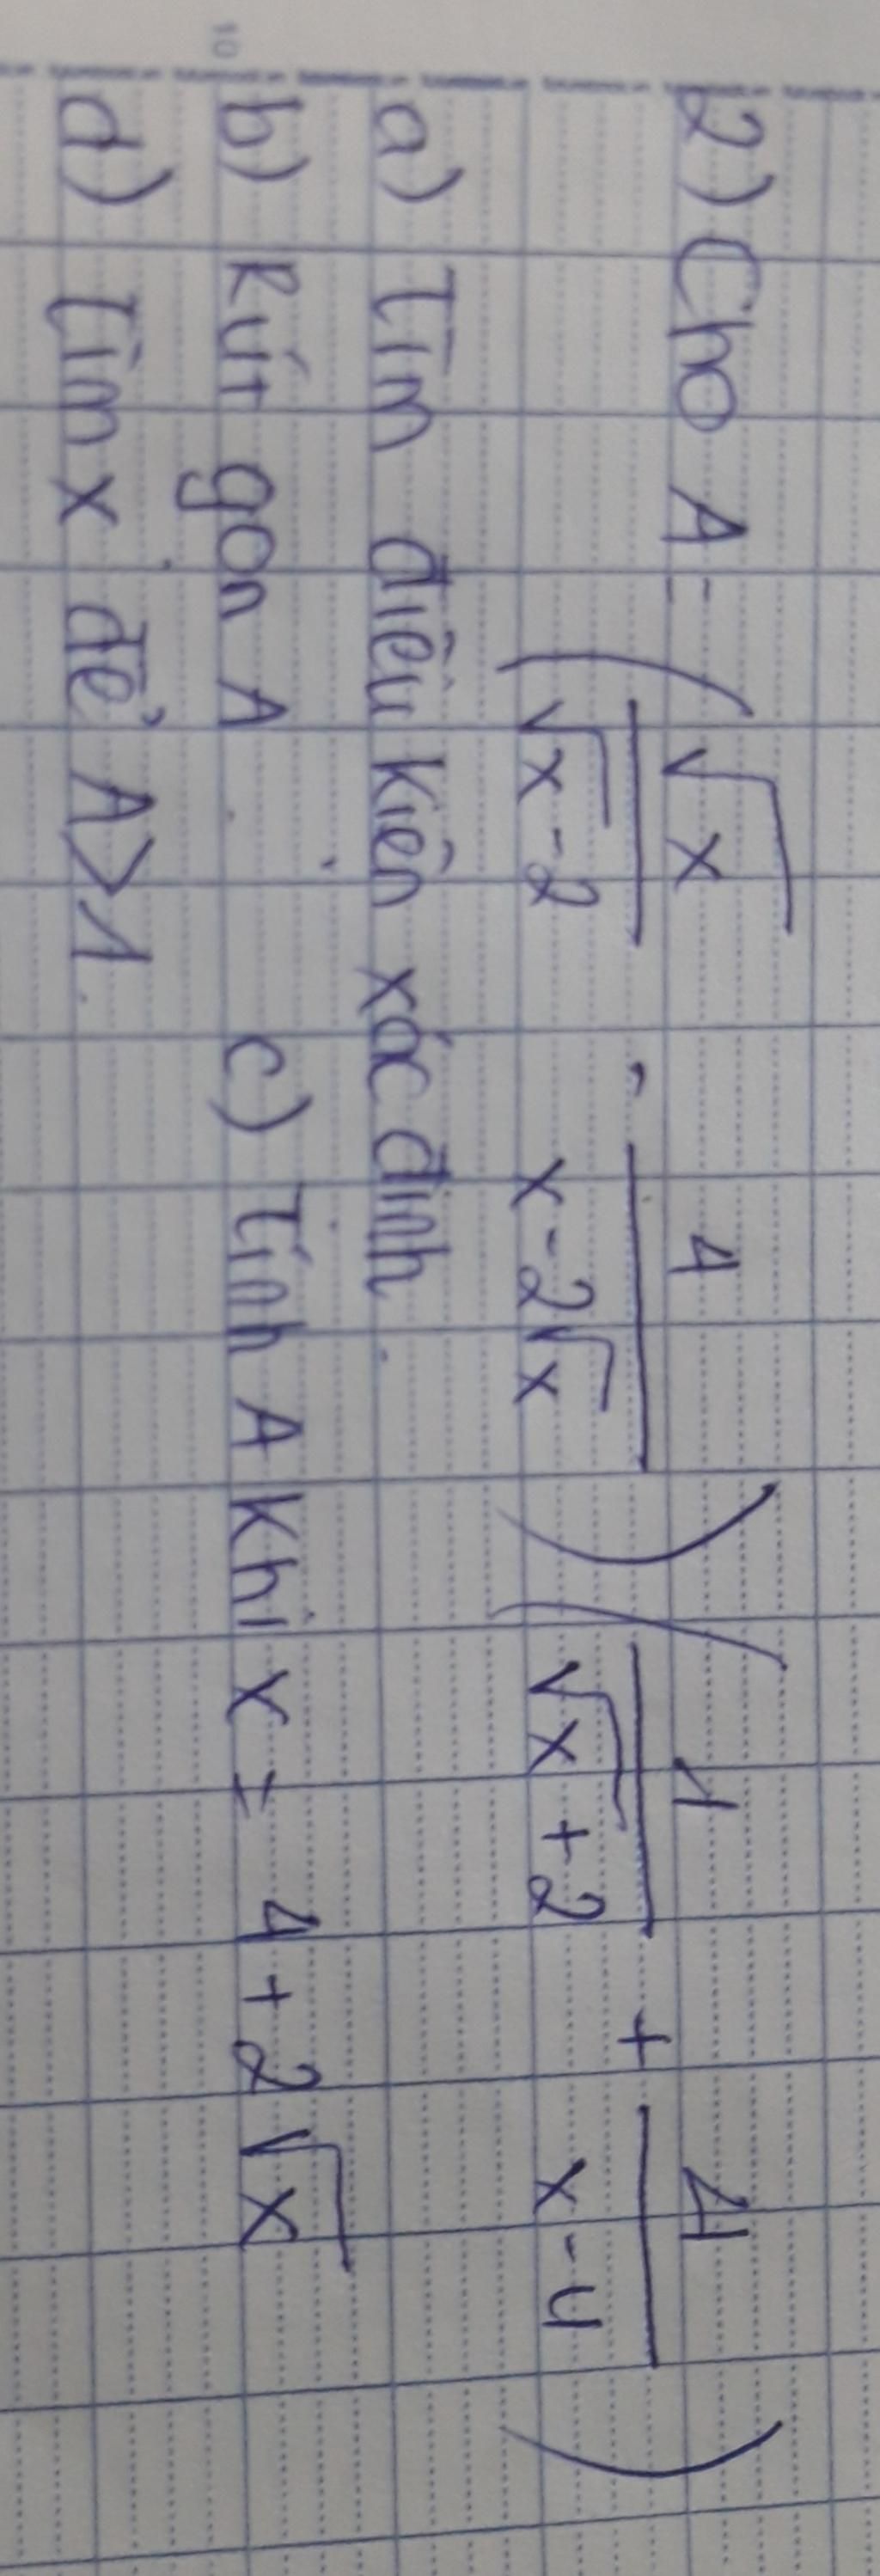 2) Cho A = ( √x / (√x - 2) - 4 / (x - 2√x) ) ( 1 / (√x + 2) + 4 / (x - 4) )
a) Tìm điều kiện xác định.
b) Rút gọn A. c) Tính A khi x = 4 + 2√x
d) Tìm x để A > 1.